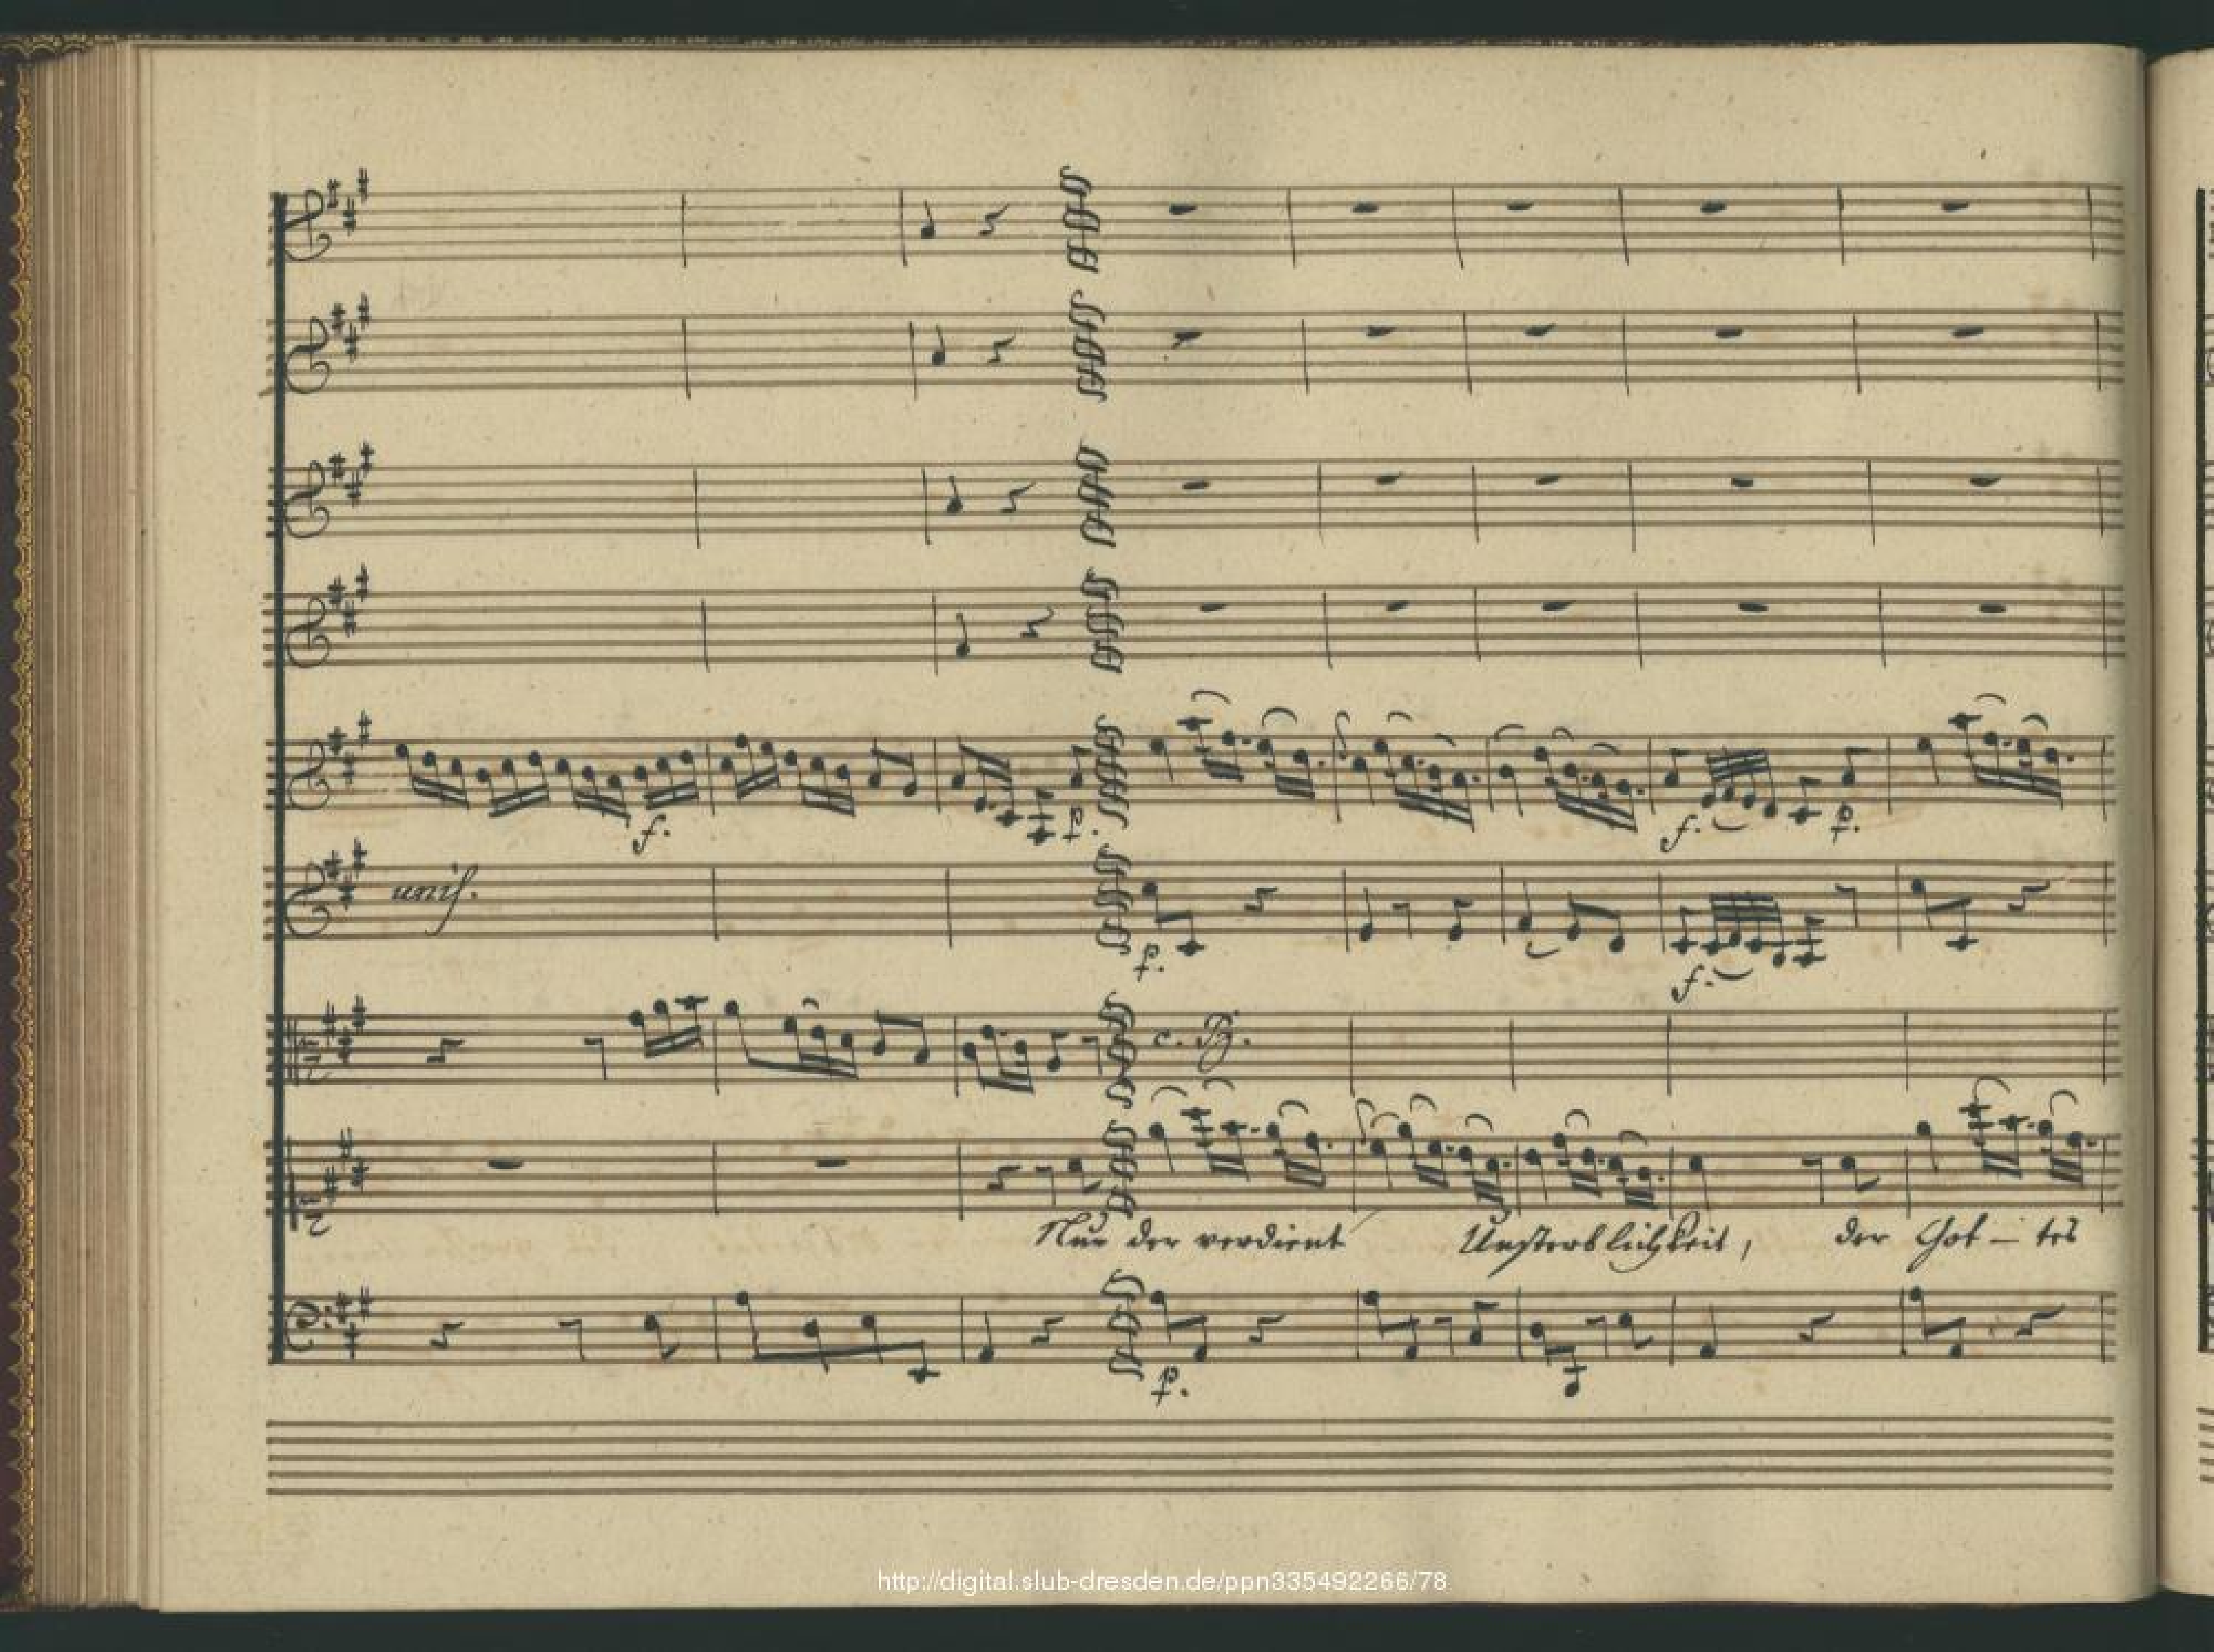 f.
p.
unis.
p.
f.
p.
f.
c. B.
Nur der verdient Unsterblichkeit, der Got - tes
p.
http://digital.slub-dresden.de/ppn335492266/78